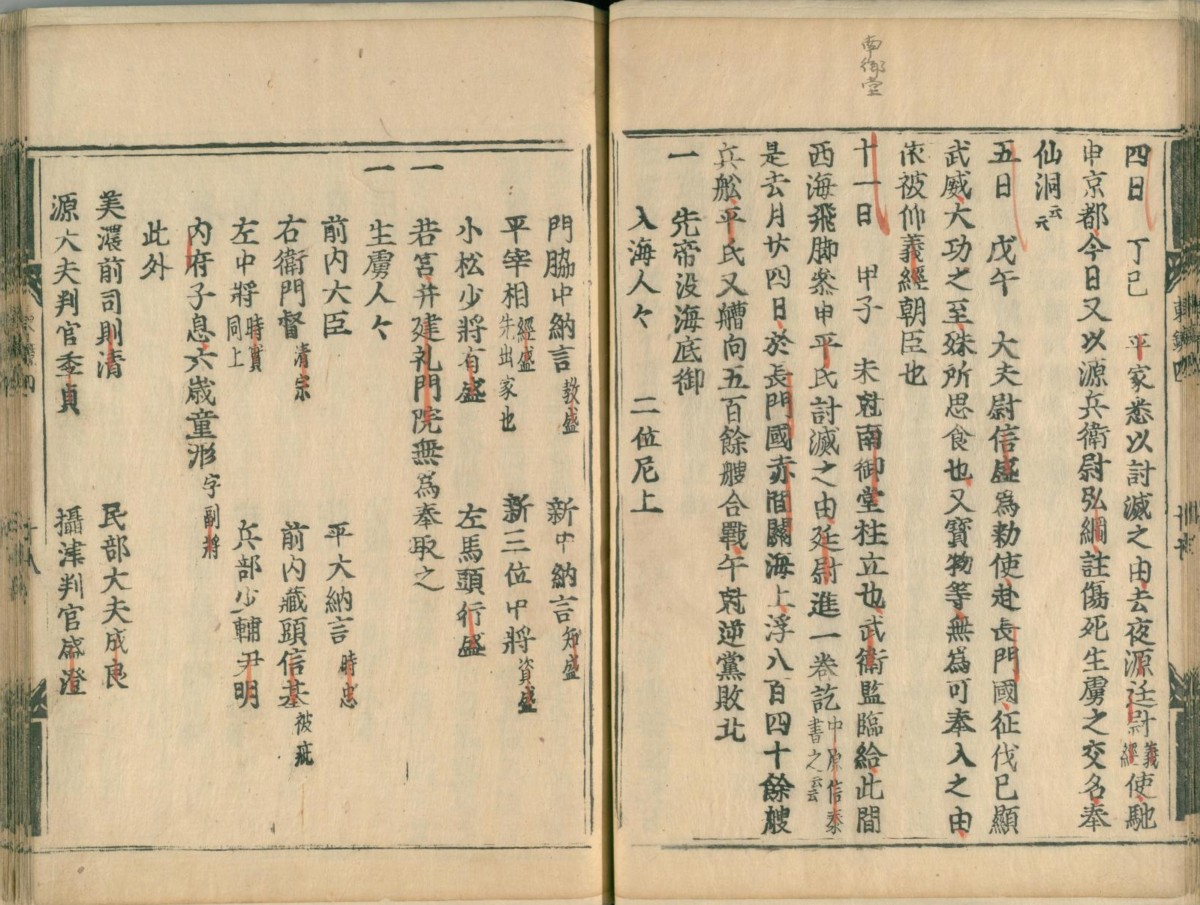 南御堂
四日　丁巳　平家悉以討滅之由去夜源廷尉義經使馳
申京都今日又以源兵衛尉弘綱註傷死生虜之交名奉
仙洞云々
五日　戊午　大夫尉信盛為勅使赴長門國征伐已顯
武威大功之至殊所思食也又寶物等無為可奉入之由
依被仰義經朝臣也
十一日　甲子　未尅南御堂柱立也武衛監臨給此間
西海飛脚參申平氏討滅之由廷尉進一卷訖中原信泰書之云云
是去月廿四日於長門國赤間關海上浮八百四十餘艘
兵舩平氏又艚向五百餘艘合戰午尅逆黨敗北
一　先帝没海底御
入海人々　二位尼上
門脇中納言教盛　新中納言知盛
平宰相經盛先出家也　新三位中將資盛
小松少將有盛　左馬頭行盛
一　若宮并建礼門院無為奉取之
一　生虜人々
前内大臣　平大納言時忠
右衛門督清宗　前内藏頭信基被疵
左中將時實同上　兵部少輔尹明
内府子息六歳童形字副將
此外
美濃前司則清　民部大夫成良
源大夫判官季貞　攝津判官盛澄